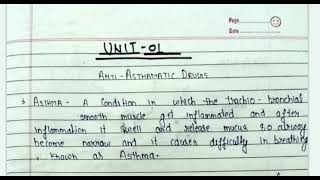 Page
Date
UNIT-01
ANTI-ASTHAMATIC DRUGS
ASTHMA - A Condition in which the trachio-bronchial
smooth muscle get inflammated and after
inflammation it swell and release mucus so airway
become narrow and it causes difficulty in breathing
, known as Asthma.